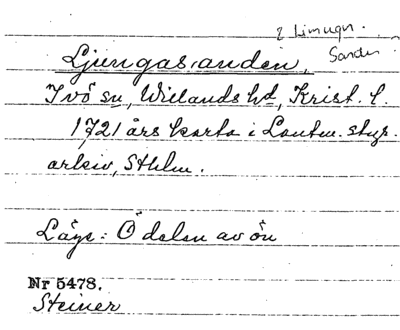 Sanden
Ljungasanden,
Ivö sn, Willands hd, Krist. l.
1721 års karta i Lantm. styr.
arkiv, Sthlm.
Läge: Ö delen av ön
Nr 5478.
Steiner